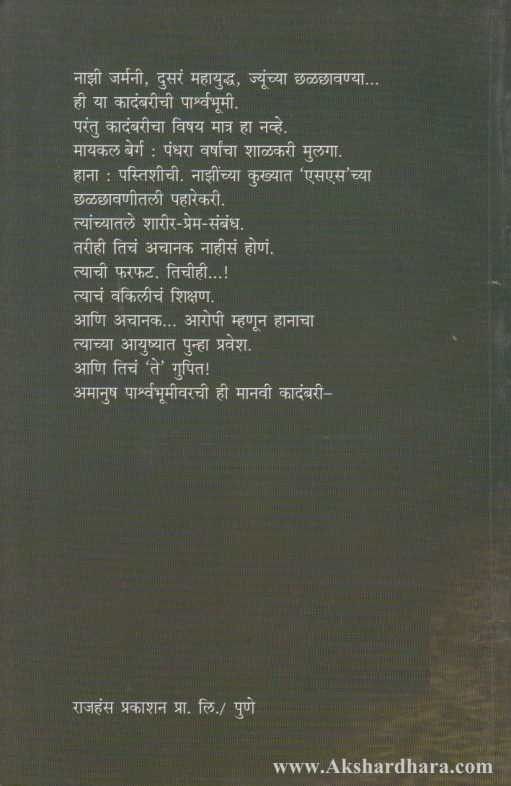 नाझी जर्मनी, दुसरं महायुद्ध, ज्यूंच्या छळछावण्या...
ही या कादंबरीची पार्श्वभूमी.
परंतु कादंबरीचा विषय मात्र हा नव्हे.
मायकल बेर्ग : पंधरा वर्षांचा शाळकरी मुलगा.
हाना : पस्तिशीची. नाझींच्या कुख्यात ‘एसएस’च्या
छळछावणीतली पहारेकरी.
त्यांच्यातले शारीर-प्रेम-संबंध.
तरीही तिचं अचानक नाहीसं होणं.
त्याची फरफट. तिचीही...!
त्याचं वकिलीचं शिक्षण.
आणि अचानक... आरोपी म्हणून हानाचा
त्याच्या आयुष्यात पुन्हा प्रवेश.
आणि तिचं ‘ते’ गुपित!
अमानुष पार्श्वभूमीवरची ही मानवी कादंबरी–
राजहंस प्रकाशन प्रा. लि./ पुणे
www.Akshardhara.com